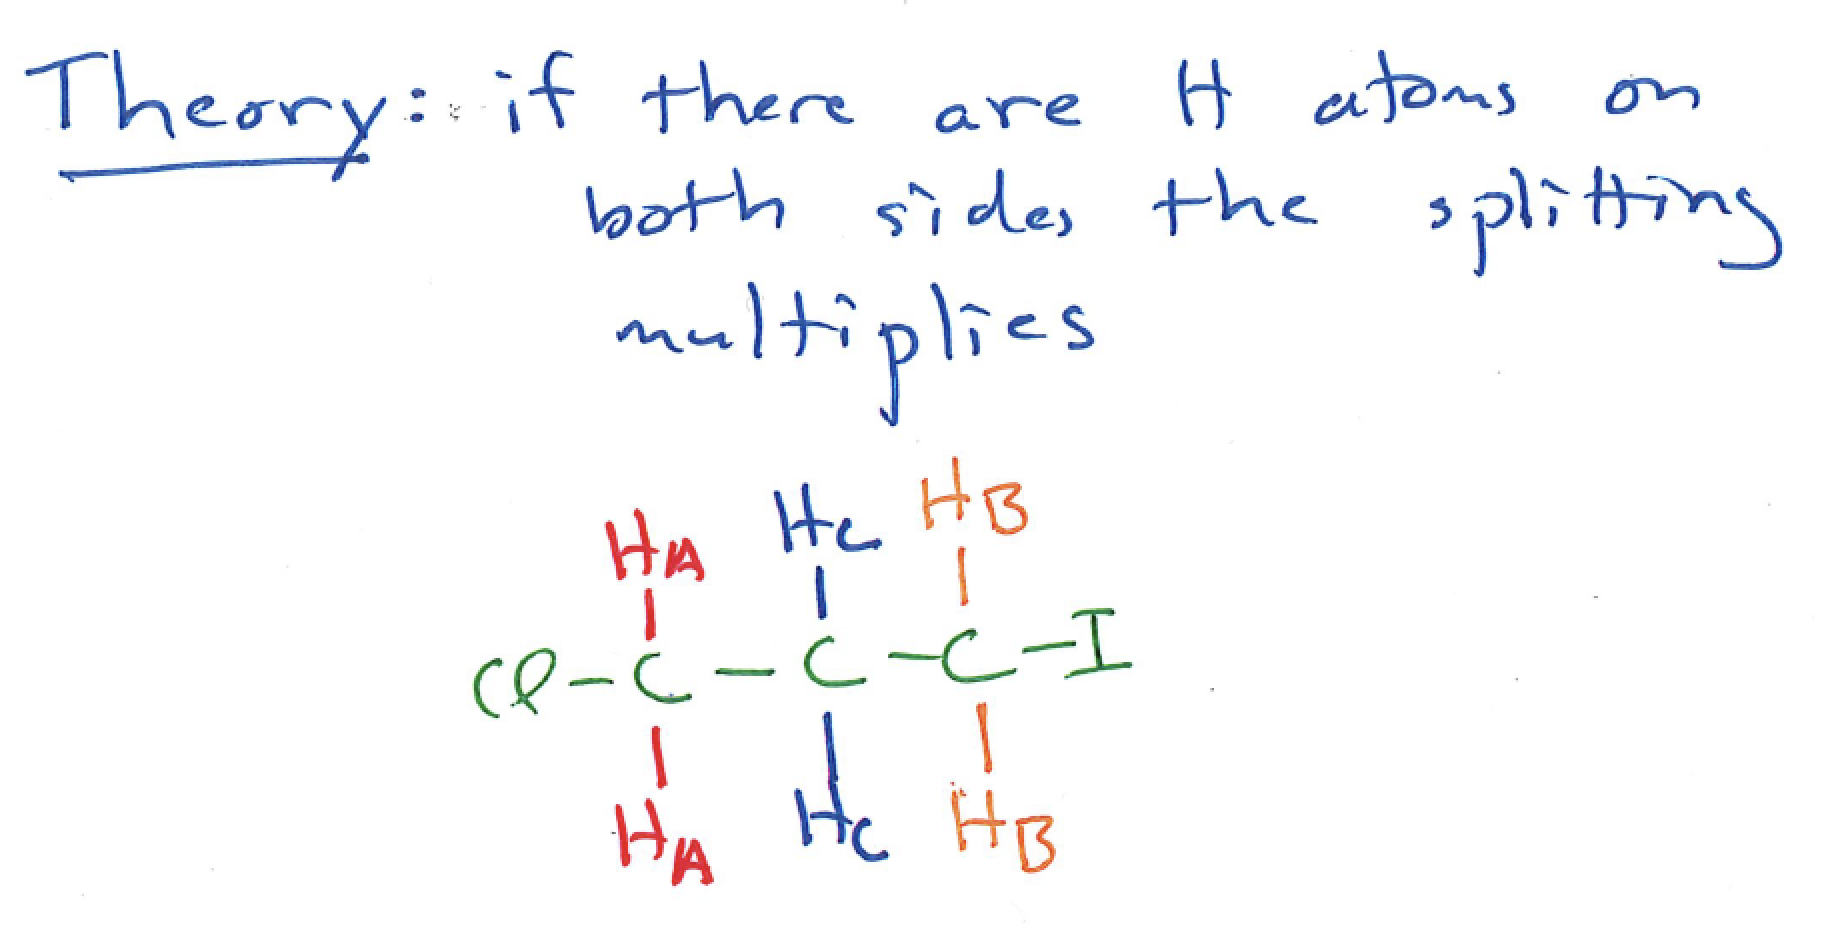 Theory: if there are H atoms on
both sides the splitting
multiplies
HA HC HB
Cl-C-C-C-I
HA HC HB